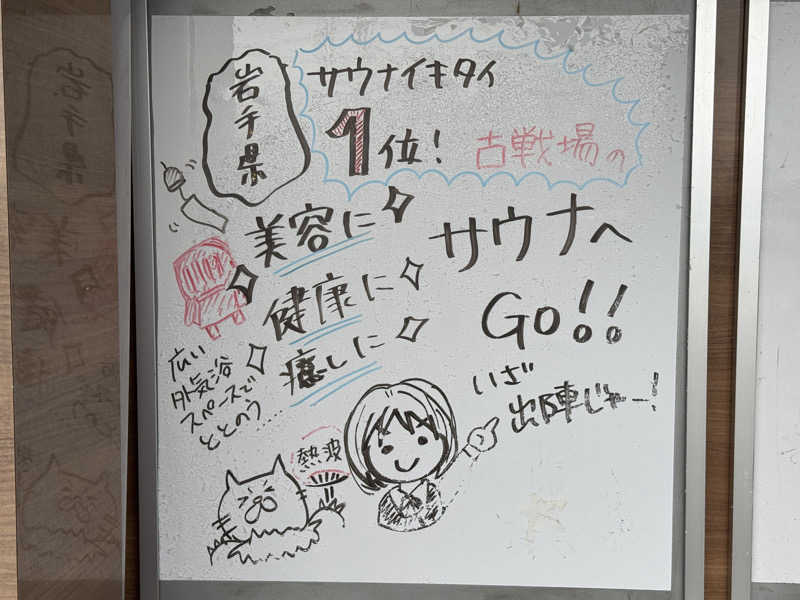 岩手県
サウナイキタイ
1位!
古戦場の
サウナへ
Go!!
美容に
健康に
癒しに
広い
外気浴
スペースで
ととのう……
熱波
いざ
出陣じゃー!